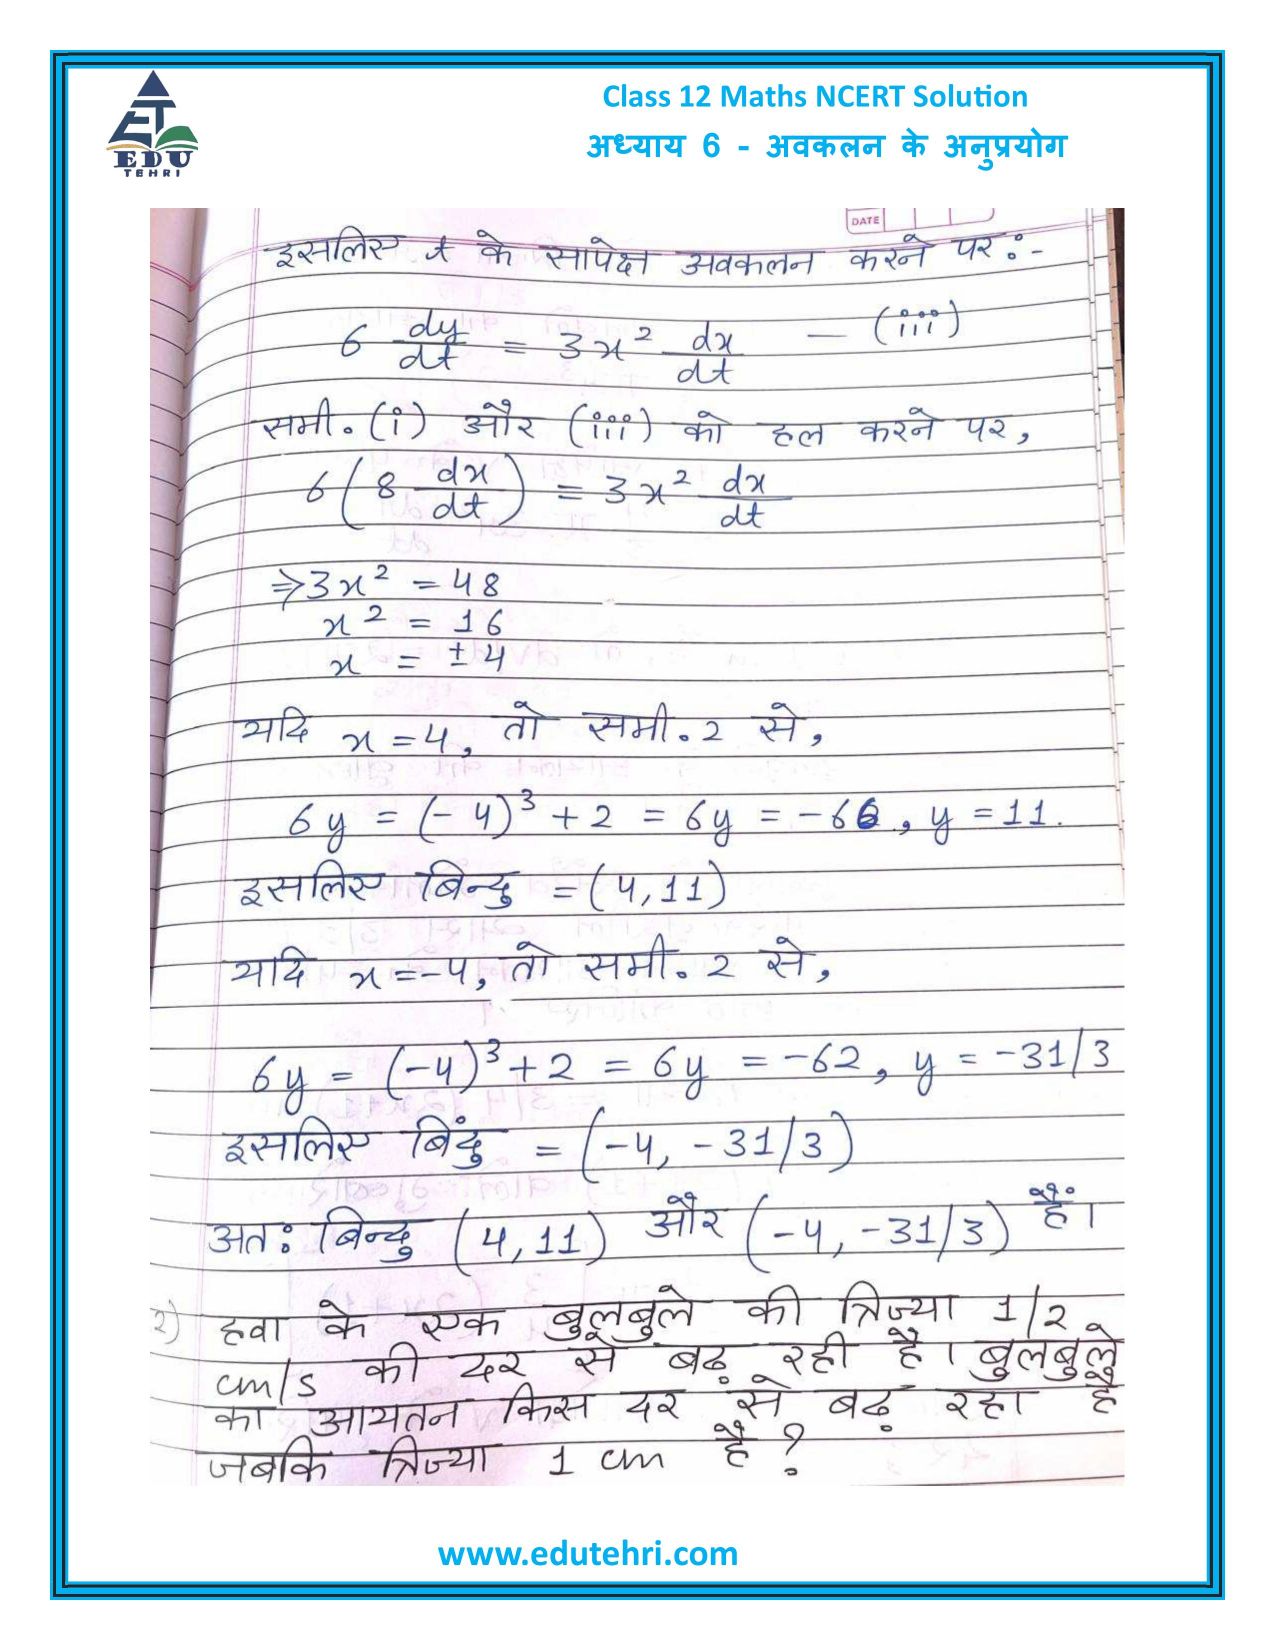 ET
EDU
TEHRI
Class 12 Maths NCERT Solution
अध्याय 6 - अवकलन के अनुप्रयोग
DATE
इसलिए t के सापेक्ष अवकलन करने पर:-
6 dy/dt = 3x² dx/dt — (iii)
समी. (i) और (iii) को हल करने पर,
6(8 dx/dt) = 3x² dx/dt
⇒ 3x² = 48
x² = 16
x = ±4
यदि x = 4, तो समी. 2 से,
6y = (-4)³ + 2 = 6y = -66, y = 11.
इसलिए बिन्दु = (4, 11)
यदि x = -4, तो समी. 2 से,
6y = (-4)³ + 2 = 6y = -62, y = -31/3
इसलिए बिंदु = (-4, -31/3)
अत: बिन्दु (4, 11) और (-4, -31/3) हैं।
2) हवा के एक बुलबुले की त्रिज्या 1/2
cm/s की दर से बढ़ रही है। बुलबुले
का आयतन किस दर से बढ़ रहा है
जबकि त्रिज्या 1 cm है?
www.edutehri.com